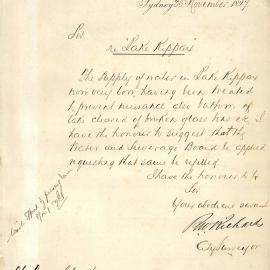 Sydney November 1897
Sir
re "Lake Kippax"
The supply of water in Lake Kippax
now very low, having been treated
to prevent nuisance also bottom of
lake cleared of broken glass has etc I
have the honour to suggest that the
Water and Sewerage Board be applied
requesting that same be refilled
I have the honour to be
Sir
Your obedient servant
Richards
City Surveyor